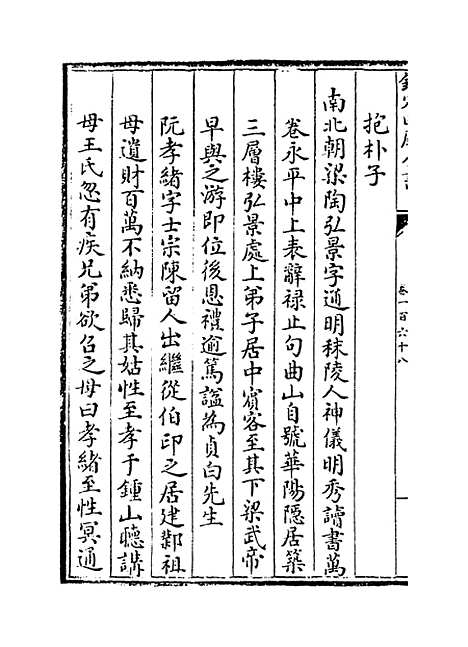 卷一百六十八
抱朴子
南北朝梁陶弘景字通明秣陵人神儀明秀讀書萬
卷永平中上表辭祿止句曲山自號華陽隠居築
三層樓弘景處上弟子居中賔客至其下梁武帝
早與之游即位後恩禮逾篤謚為貞白先生
阮孝緒字士宗陳留人出繼從伯印之居建鄴祖
母遺財百萬不納悉歸其姑性至孝于鍾山聽講
母王氏忽有疾兄弟欲召之母曰孝緒至性冥通